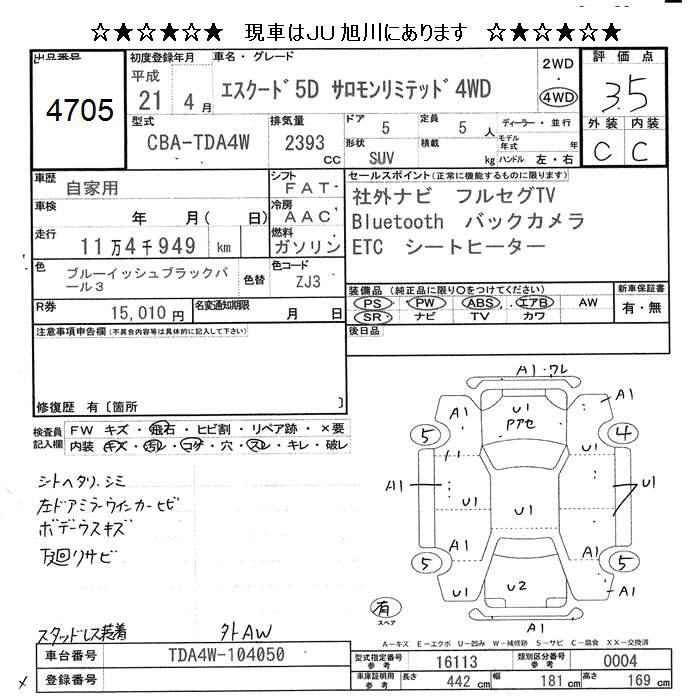 ☆★☆★☆★ 現車はJU旭川にあります ☆★☆★☆★
出品番号 4705
初度登録年月 平成 21 4月
車名・グレード
エスクード 5D サロモンリミテッド 4WD
2WD
4WD
評価点
3.5
外装 内装
C C
型式 CBA-TDA4W
排気量 2393 cc
ドア 5
形状 SUV
定員 5 人
積載 kg
ディーラー・並行
モデル年式 年
ハンドル 左・右
車歴 自家用
シフト FAT
車検 年 月( 日)
冷房 AAC
走行 11万4千949 km
燃料 ガソリン
色 ブルーイッシュブラックパール3
色替
色コード ZJ3
R券 15,010円
名変通知期限 月 日
セールスポイント(正常に機能するものに限ります)
社外ナビ フルセグTV
Bluetooth バックカメラ
ETC シートヒーター
装備品(純正品に限り○をつけてください)
PS PW ABS エアB AW
SR ナビ TV カワ
新車保証書
有・無
後日品
注意事項申告欄(不具合内容等は具体的に記入して下さい)
修復歴 有〔箇所 〕
検査員記入欄
FW キズ・飛石・ヒビ割・リペア跡・×要
内装・キズ・汚レ・コゲ・穴・スレ・キレ・破レ
シートヘタリ、シミ
左ドアミラーウインカーヒビ
ボデーウスキズ
下回リサビ
スタッドレス装着 外AW
A1・ワレ
A1
U1
Pアセ
A1
5
4
U1
A1
U1
U1
U1
A1
A1
5
5
U1
U2
A1
A1
有
スペア
A1
A-キズ E-エクボ U-凹み W-補修跡 S-サビ C-腐食 XX-交換済
車台番号 TDA4W-104050
登録番号
型式指定番号 参考 16113
類別区分番号 参考 0004
車庫証明用 参考
長さ 442 cm
幅 181 cm
高さ 169 cm